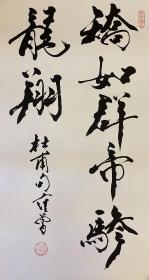 矯如群帝驂
龍翔
杜甫句 范曾